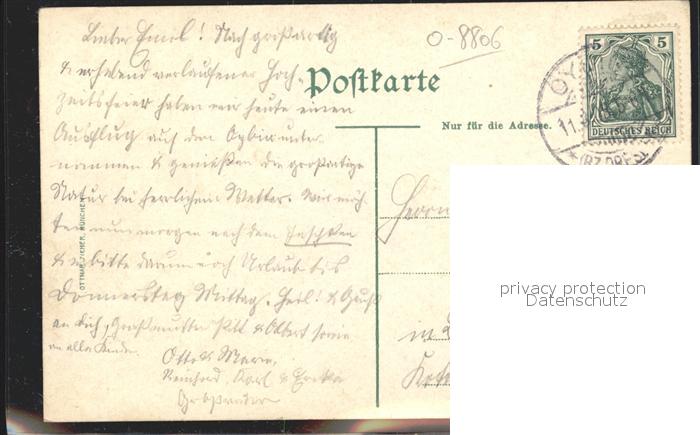 Lieber Emil! Nach großartig
& erhebend verlaufener Hoch-
zeitsfeier haben wir heute einen
Ausflug auf den Oybin unter-
nommen & genießen die großartige
Natur bei herrlichem Wetter. Wir möch-
ten nun morgen nach dem Jeschken
& erbitte darum noch Urlaub bis
Donnerstag Mittag. Heil! & Gruß
an Dich, Großmutter, & Albert sowie
an alle Kinder.
Otto & Marie,
Reinhard, Karl &
O-8806
Postkarte
Nur für die Adresse.
5 5
DEUTSCHES REICH
OY
11.
* (BZ. DRESD
OTTMAR ZIEHER, MÜNCHEN
Herrn
in
privacy protection
Datenschutz